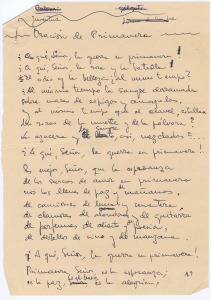 Oración de Primavera
¿A qué, Señor, la guerra en primavera?
¿A qué, Señor, la rosa y la batalla?
¿El odio y la belleza, al mismo tiempo?
¿Al mismo tiempo la sangre derramada
sobre espigas y amapolas,
y al mismo tiempo que el clavel, estallan
de la muerte y de la pólvora?
La azucena y el así, mezclados...
¿A qué, Señor, la guerra en primavera!
Es mejor, Señor, que la esperanza
de los besos de amor en primavera
nos llene de paz las mañanas,
de canciones de y sementera
de clamores de alondras y de guitarra
de perfumes de aliento y poesía,
de destellos de vino y de manzana.
¿A qué, Señor, la guerra en primavera!
Primavera, Señor, es la esperanza;
es la paz, es la alegría,